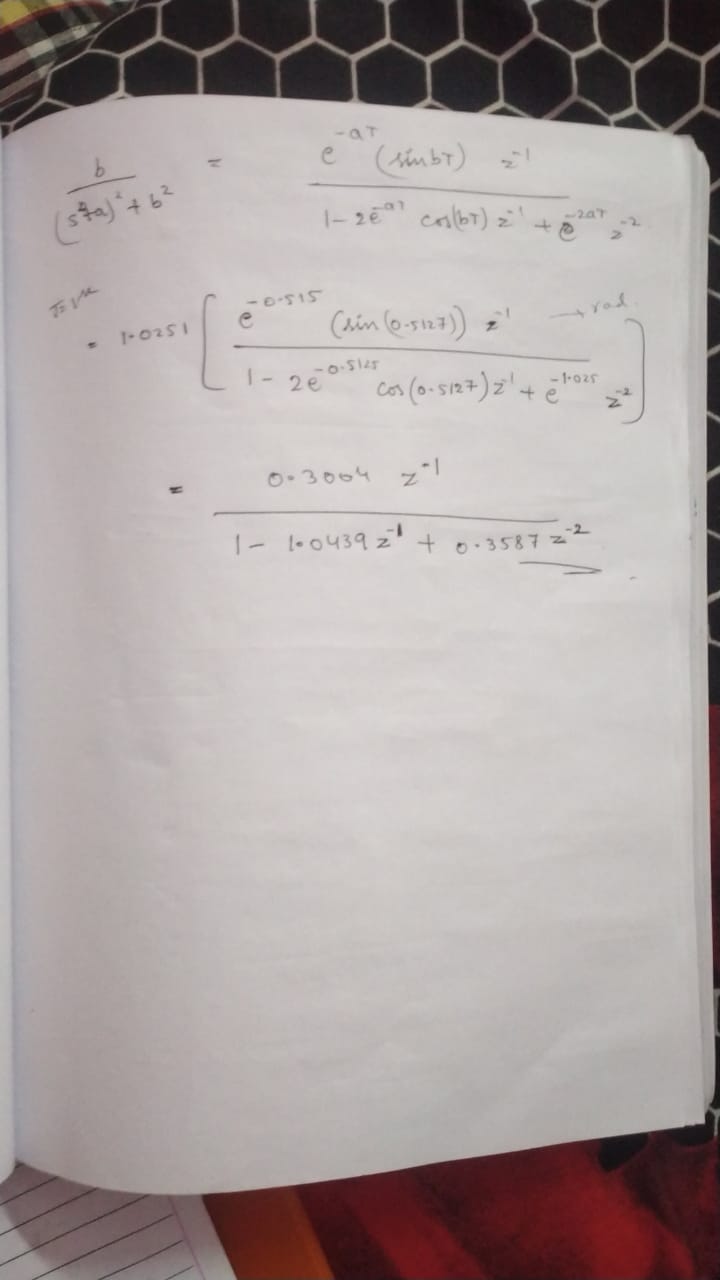 b / (s+a)² + b² = e^-aT (sin bT) z^-1 / 1 - 2e^-aT cos(bT) z^-1 + e^-2aT z^-2
= 1.0251 [ e^-0.515 (sin (0.5127)) z^-1 / 1 - 2e^-0.5125 cos(0.5127) z^-1 + e^-1.025 z^-2 ] → rad.
= 0.3004 z^-1 / 1 - 1.0439 z^-1 + 0.3587 z^-2